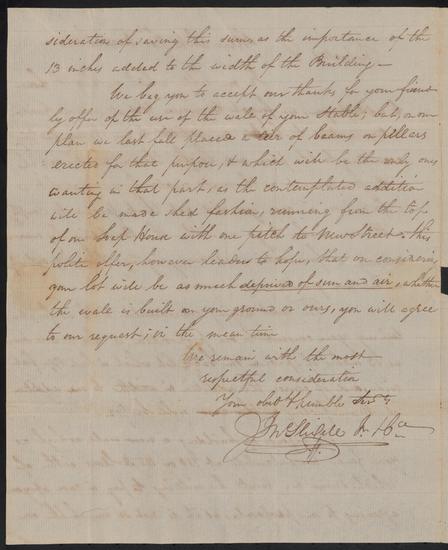 sideration of saving this sum, as the importance of the
13 inches added to the width of the Building—
We beg you to accept our thanks for your friend
ly offer of the use of the wale of your Stable; but, on our
plan we last fall placed a tier of beams on pillars
erected for that purpose, & which will be the only ones
wanting in that part, as the contemplated addition
will be made shed fashion, running from the top
of our House with one pitch to New Street. this
polite offer, however leads us to hope, that on considering
your lot will be as much deprived of sun and air, whether
the wale is built on your ground or ours, you will agree
to our request; in the mean time
We remain with the most
respectful consideration
Your obdt & humble Servts
Jno Slidell Jr & Co